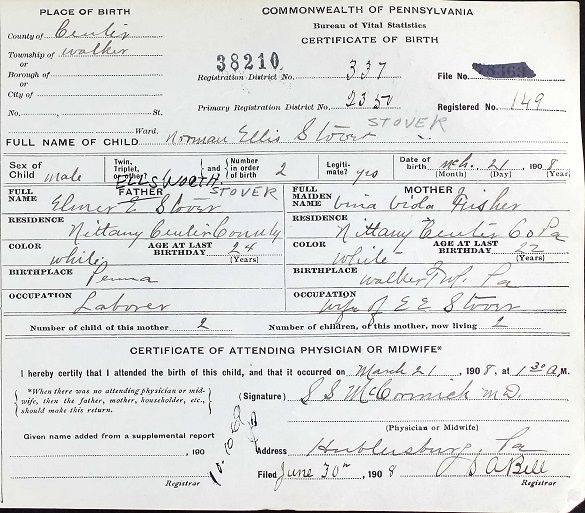 PLACE OF BIRTH
COMMONWEALTH OF PENNSYLVANIA
County of Center
Bureau of Vital Statistics
Township of Walker
CERTIFICATE OF BIRTH
or
Borough of
38210
337
Registration District No.
File No.
or
City of
2350
Primary Registration District No.
Registered No. 149
No. , St.
STOVER
Ward.
FULL NAME OF CHILD Norman Ellis Stover
Sex of Child male
Twin, Triplet, or other?
and
Number in order of birth 2
Legitimate? yes
Date of birth Mch. 21 1908
(Month) (Day) (Year)
ELLSWORTH STOVER
FATHER
MOTHER
FULL NAME Elmer E Stover
FULL MAIDEN NAME Vina Vida Fisher
RESIDENCE Nittany Center County
RESIDENCE Nittany Center Co Pa
COLOR white
AGE AT LAST BIRTHDAY 24 (Years)
COLOR white
AGE AT LAST BIRTHDAY 22 (Years)
BIRTHPLACE Penna
BIRTHPLACE Walker Twp. Pa
OCCUPATION Laborer
OCCUPATION wife of E E Stover
Number of child of this mother 2
Number of children, of this mother, now living 2
CERTIFICATE OF ATTENDING PHYSICIAN OR MIDWIFE*
I hereby certify that I attended the birth of this child, and that it occurred on March 21, 1908, at 1 30 A M.
*When there was no attending physician or mid-
wife, then the father, mother, householder, etc.,
should make this return.
(Signature) S S McCormick M D
(Physician or Midwife)
Given name added from a supplemental report
, 190
Address Hublersburg, Pa
Filed June 30th, 1908 S A Bell
Registrar
Registrar